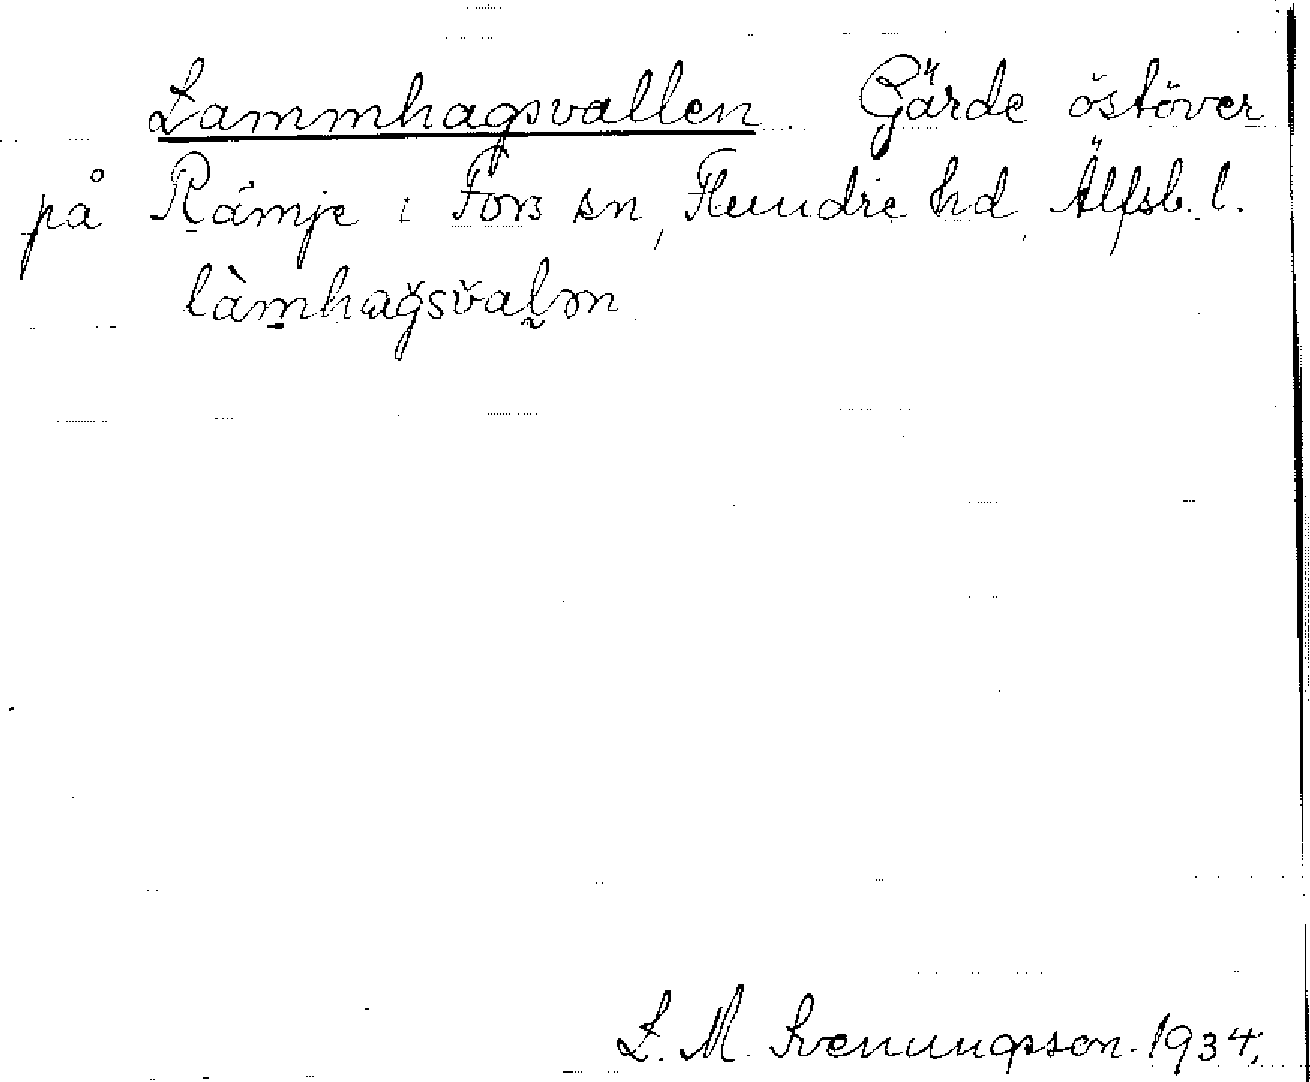 Lammhagsvallen. Gärde östöver
på Råmje i Fors sn, Flundre hd, Älfsb. l.
làmhağsv̆alən
L. M. Svenungsson. 1934.